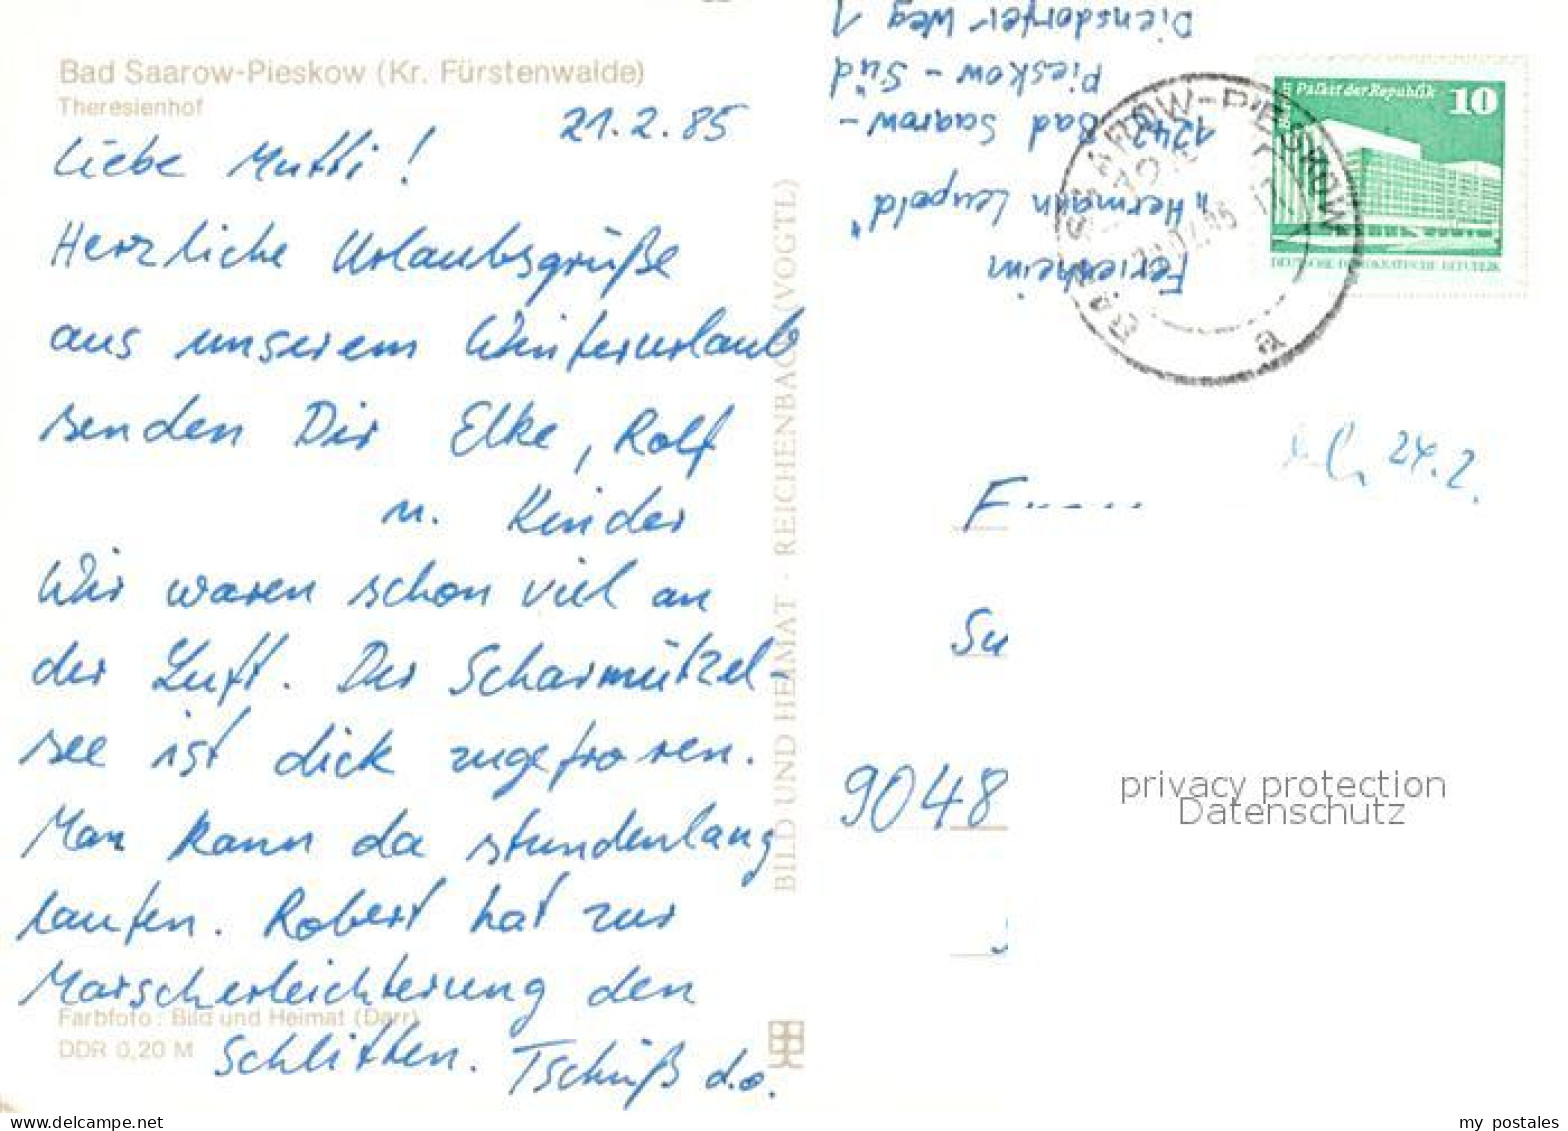 Bad Saarow-Pieskow (Kr. Fürstenwalde)
Theresienhof
21.2.85
Liebe Mutti!
Herzliche Urlaubsgrüße
aus unserem Winterurlaub
senden Dir Elke, Rolf
u. Kinder
Wir waren schon viel an
der Luft. Der Scharmützel-
see ist dick zugefroren.
Man kann da stundenlang
laufen. Robert hat zur
Marscherleichterung den
Schlitten. Tschüß d.o.
Farbfoto: Bild und Heimat (Darr)
DDR 0,20 M
BILD UND HEIMAT · REICHENBACH (VOGTL)
Ferienheim
"Hermann Leupold"
1242 Bad Saarow-
Pieskow-Süd
Diensdorfer Weg 1
Palast der Republik 10
DEUTSCHE DEMOKRATISCHE REPUBLIK
BAD SAAROW-PIESKOW
a
24.2.
Su
9048
privacy protection
Datenschutz
my postales